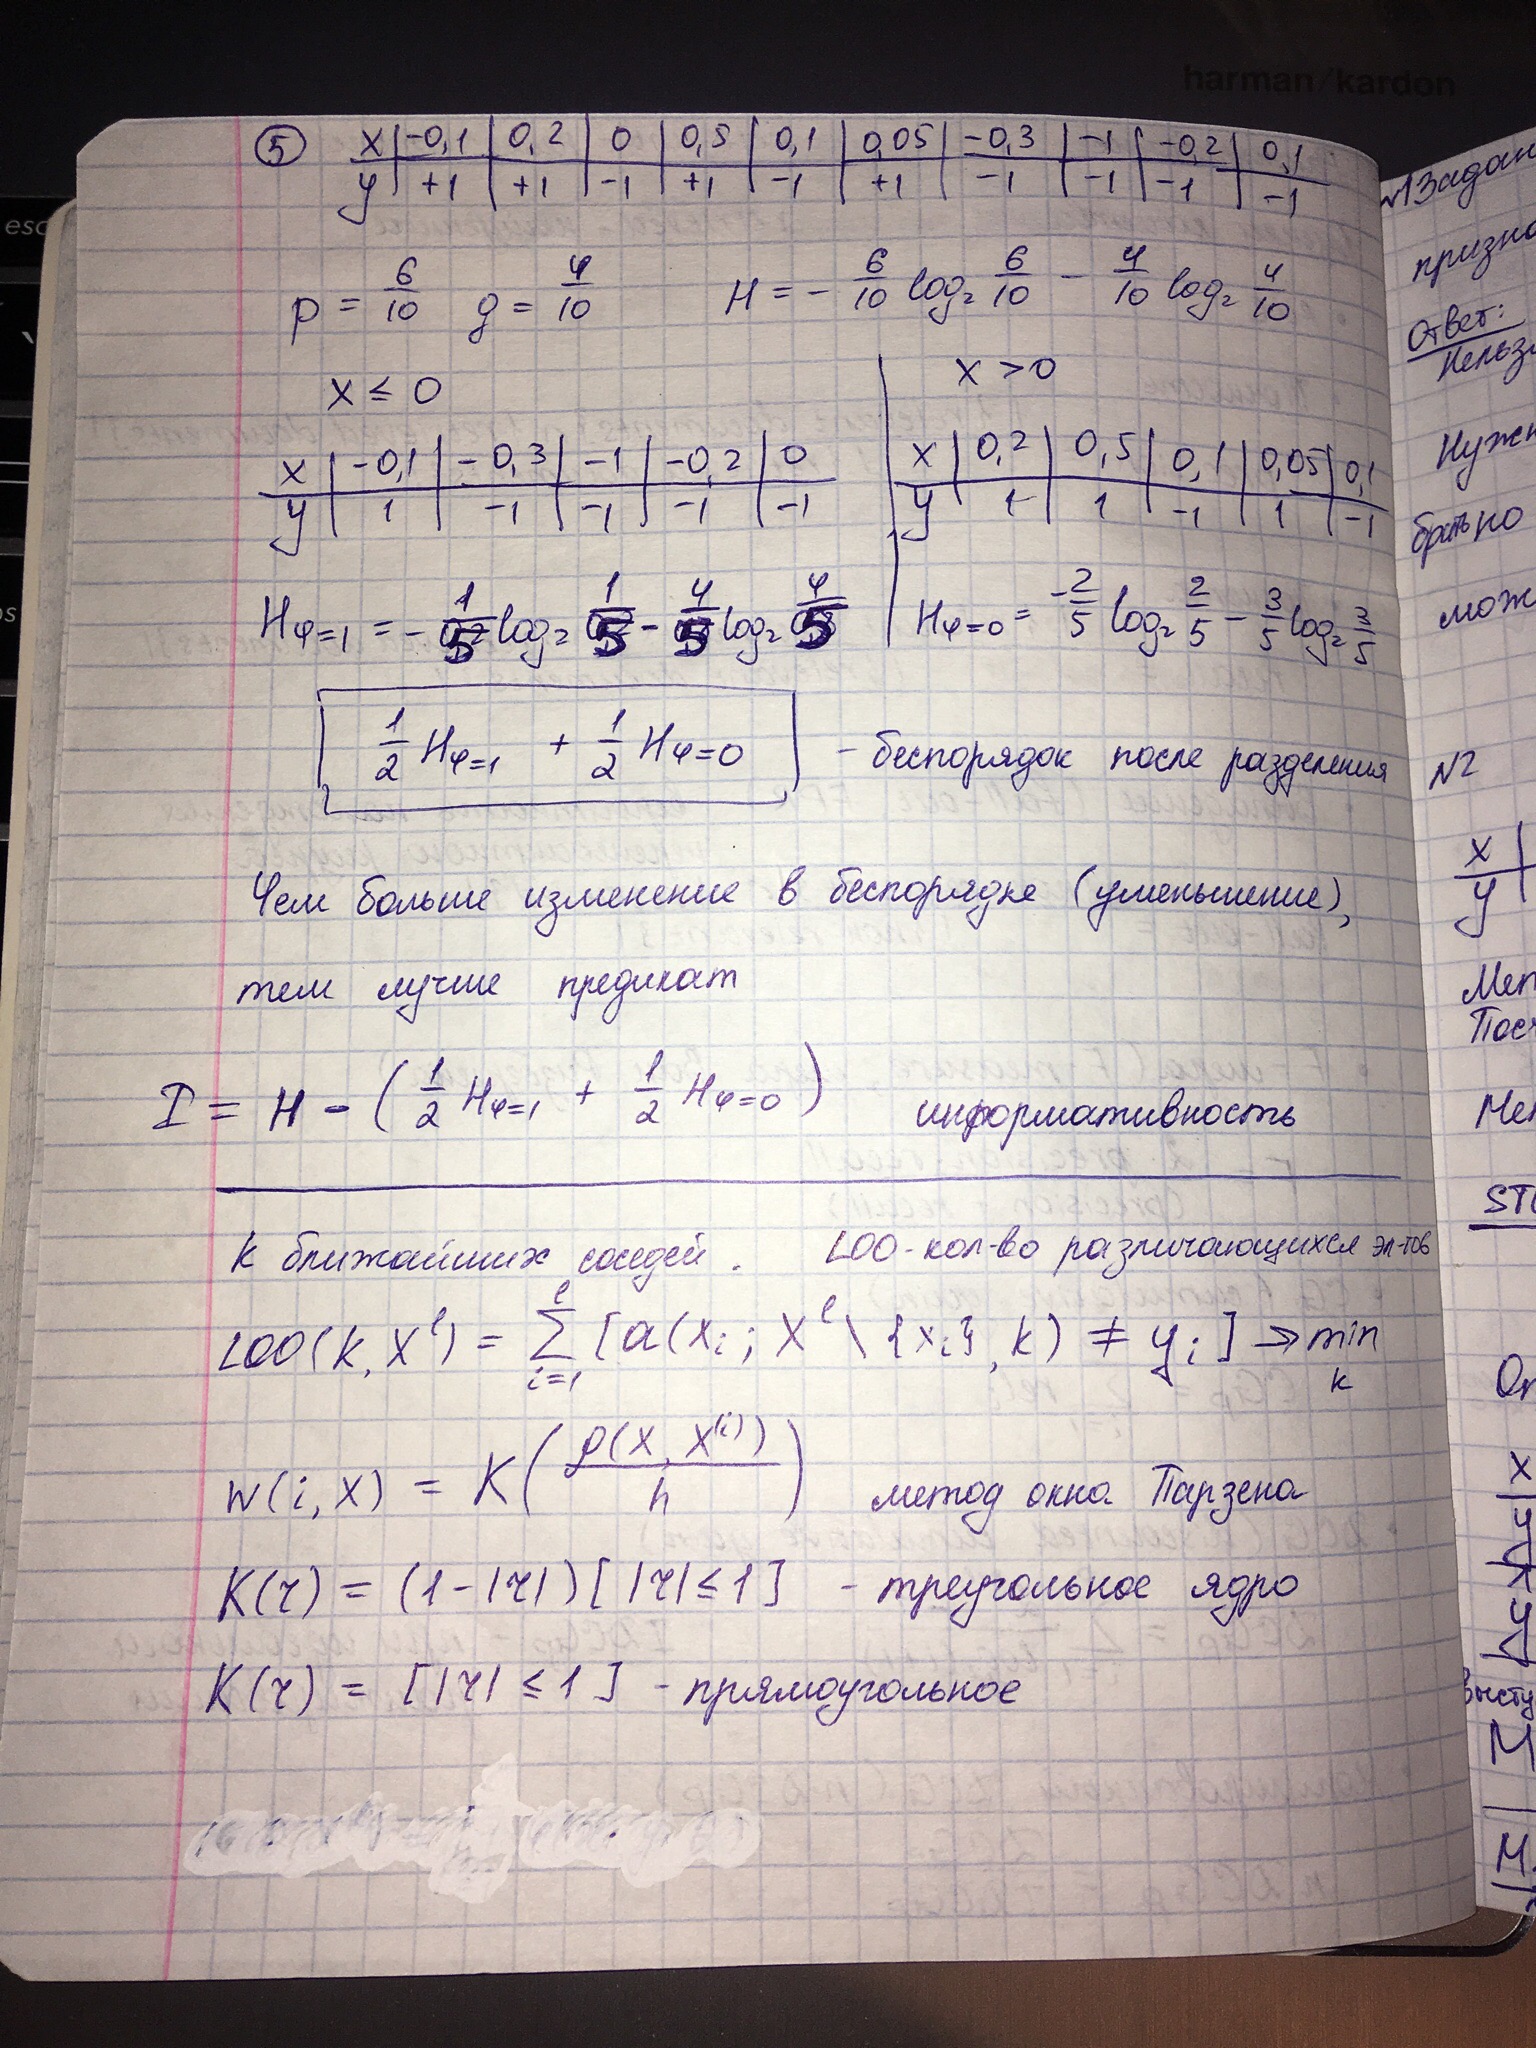 harman/kardon
esc
⑤ x | -0,1 | 0,2 | 0 | 0,5 | 0,1 | 0,05 | -0,3 | -1 | -0,2 | 0,1
y | +1 | +1 | -1 | +1 | -1 | +1 | -1 | -1 | -1 | -1
p = 6/10 q = 4/10 H = - 6/10 log₂ 6/10 - 4/10 log₂ 4/10
x ≤ 0
x | -0,1 | -0,3 | -1 | -0,2 | 0
y | 1 | -1 | -1 | -1 | -1
H φ=1 = - 1/5 log₂ 1/5 - 4/5 log₂ 4/5
x > 0
x | 0,2 | 0,5 | 0,1 | 0,05 | 0,1
y | 1 | 1 | -1 | 1 | -1
H φ=0 = -2/5 log₂ 2/5 - 3/5 log₂ 3/5
1/2 H φ=1 + 1/2 H φ=0 - беспорядок после разделения
Чем больше изменение в беспорядке (уменьшение),
тем лучше предикат
I = H - (1/2 H φ=1 + 1/2 H φ=0) информативность
k ближайших соседей. LOO - кол-во различающихся эл-тов
LOO(k, Xˡ) = ∑ˡ i=1 [a(xᵢ; Xˡ \ {xᵢ}, k) ≠ yᵢ] → min k
w(i, x) = K(ρ(x, x⁽ⁱ⁾)/h) метод окна Парзена
K(r) = (1-|r|) [|r| ≤ 1] - треугольное ядро
K(r) = [|r| ≤ 1] - прямоугольное
№1
Ответ:
но
№2
x
y
x